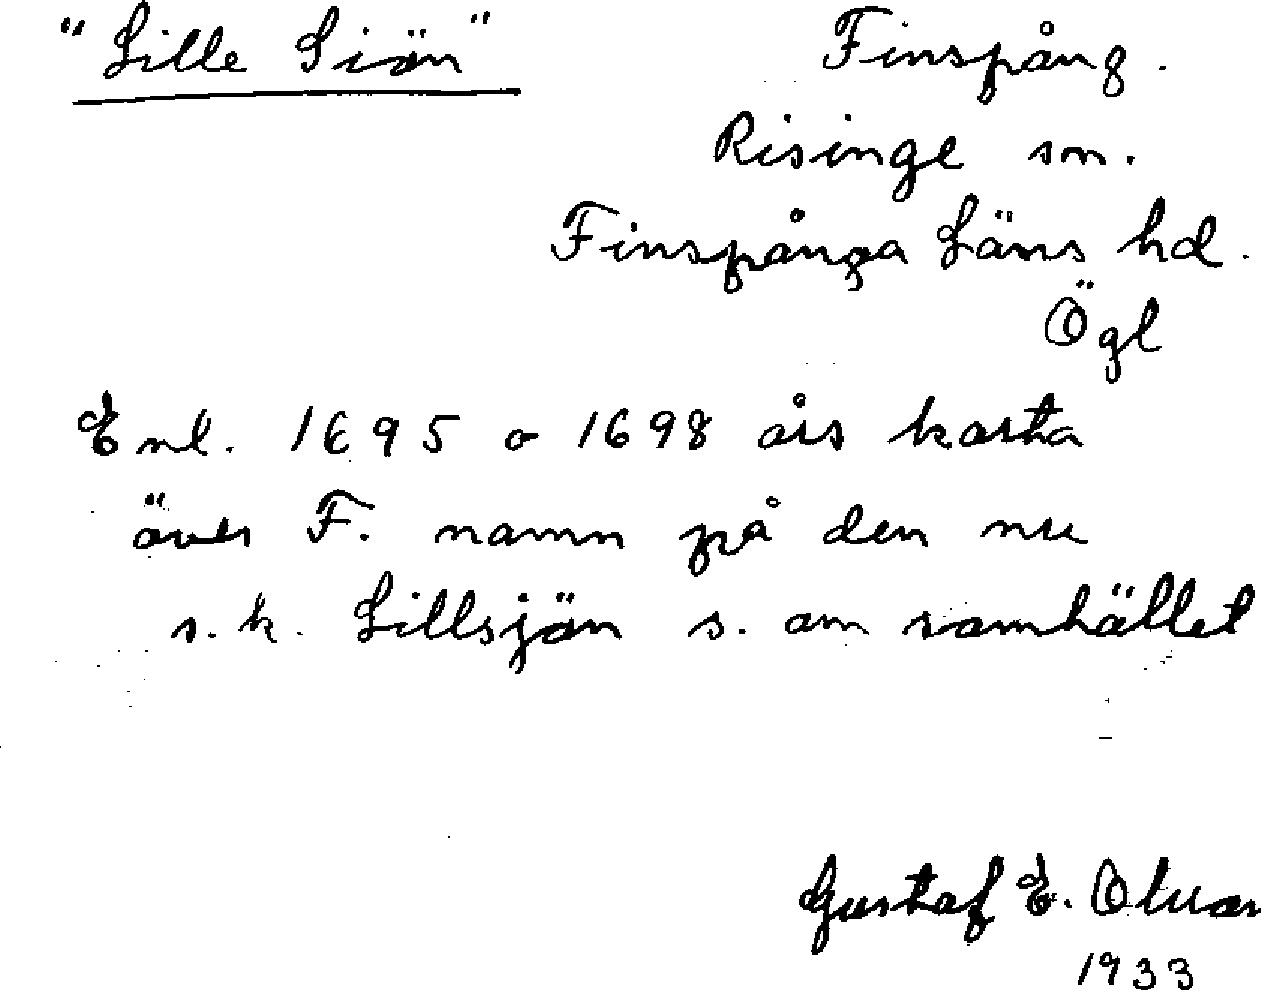 "Lille Siön" Finspång.
Risinge sn.
Finspånga Läns hd.
Ögl
Enl. 1695 o 1698 års karta
över F. namn på den nu
s.k. Lillsjön s. om samhället
Gustaf E.
1933